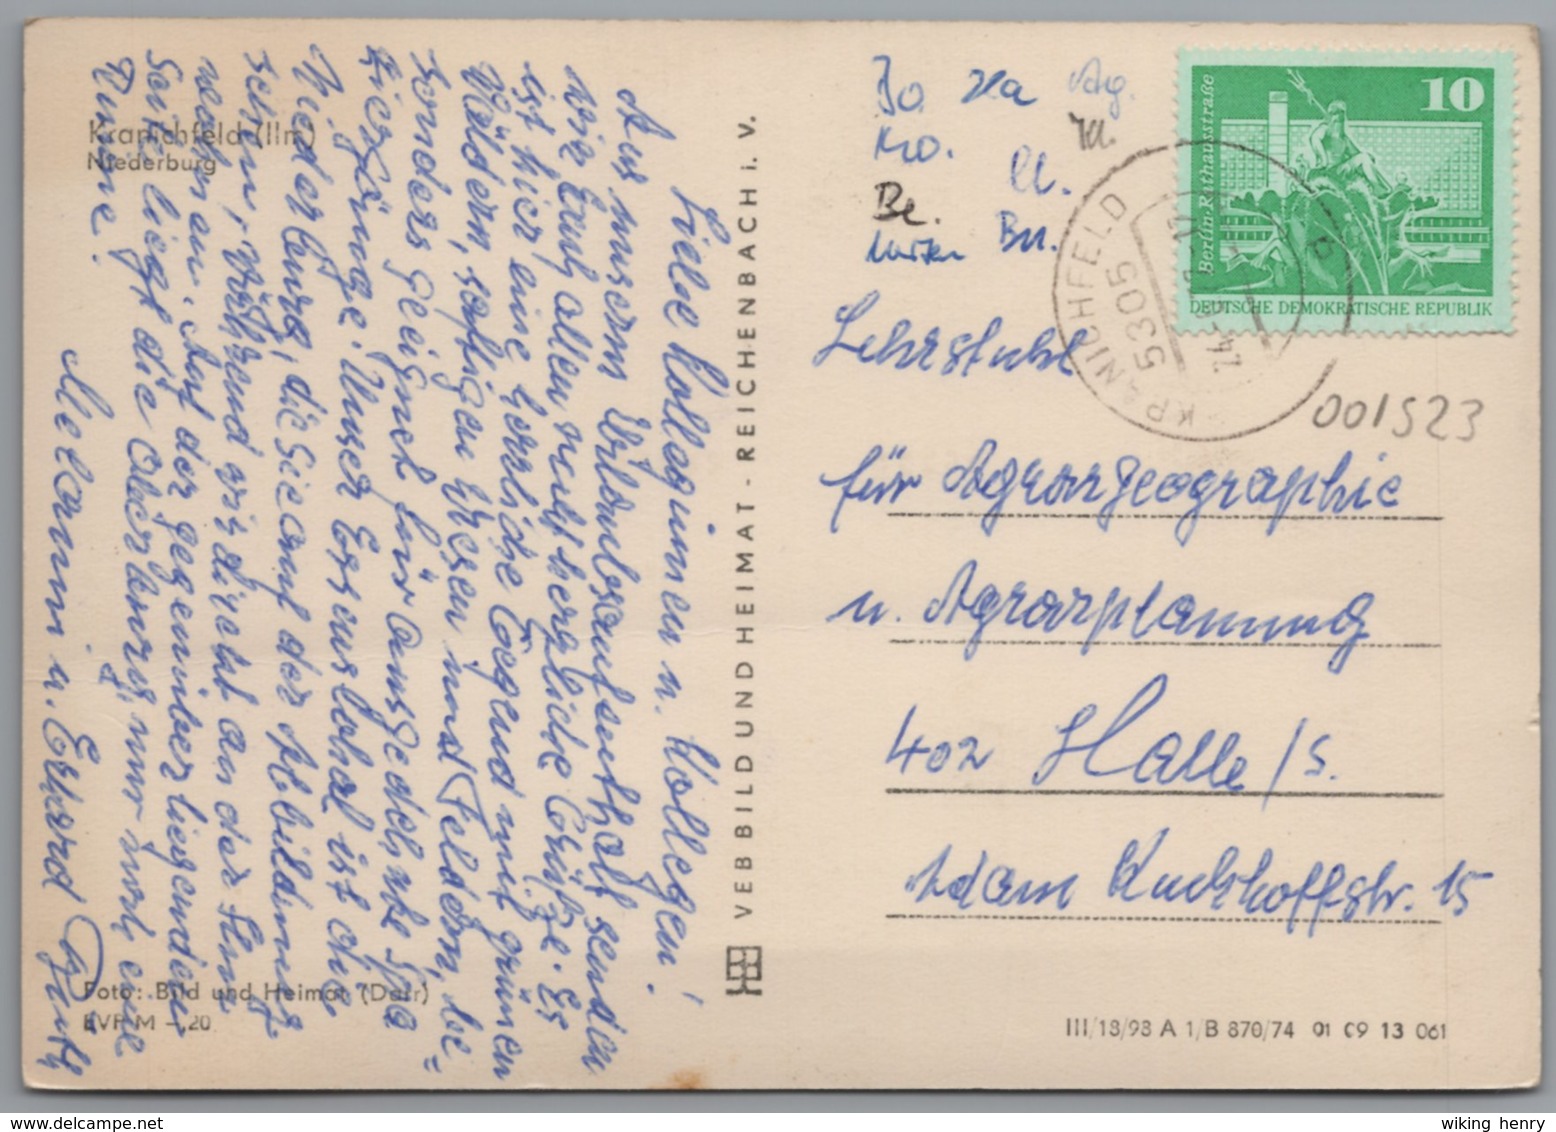 Kranichfeld (Ilm)
Niederburg
Liebe Kolleginnen u. Kollegen!
Aus unserm Urlaubsaufenthalt senden
wir Euch allen recht herzliche Grüße. Es
ist hier eine herrliche Gegend mit grünen
Wäldern, saftigen Wiesen und Feldern, be=
sonders geeignet für ausgedehnte Spa
ziergänge. Unser Essenslokal ist die
Niederburg, die Sie auf der Abbildung
sehen, während wir direkt an der Ilm
wohnen. Auf der gegenüberliegenden
Seite liegt die Oberburg, nur noch eine
Ruine.
u. Erhard
Foto: Bild und Heimat (Darr)
EVP M –,20
VEB BILD UND HEIMAT · REICHENBACH i. V.
Jo
Ko.
Be.
Bu.
10
Berlin-Rathausstraße
DEUTSCHE DEMOKRATISCHE REPUBLIK
KRANICHFELD
5305
001523
Lehrstuhl
für Agrargeographie
u. Agrarplanung
402 Halle/S.
Adam Kuckhoffstr. 15
III/18/93 A 1/B 870/74 01 09 13 061
wiking henry